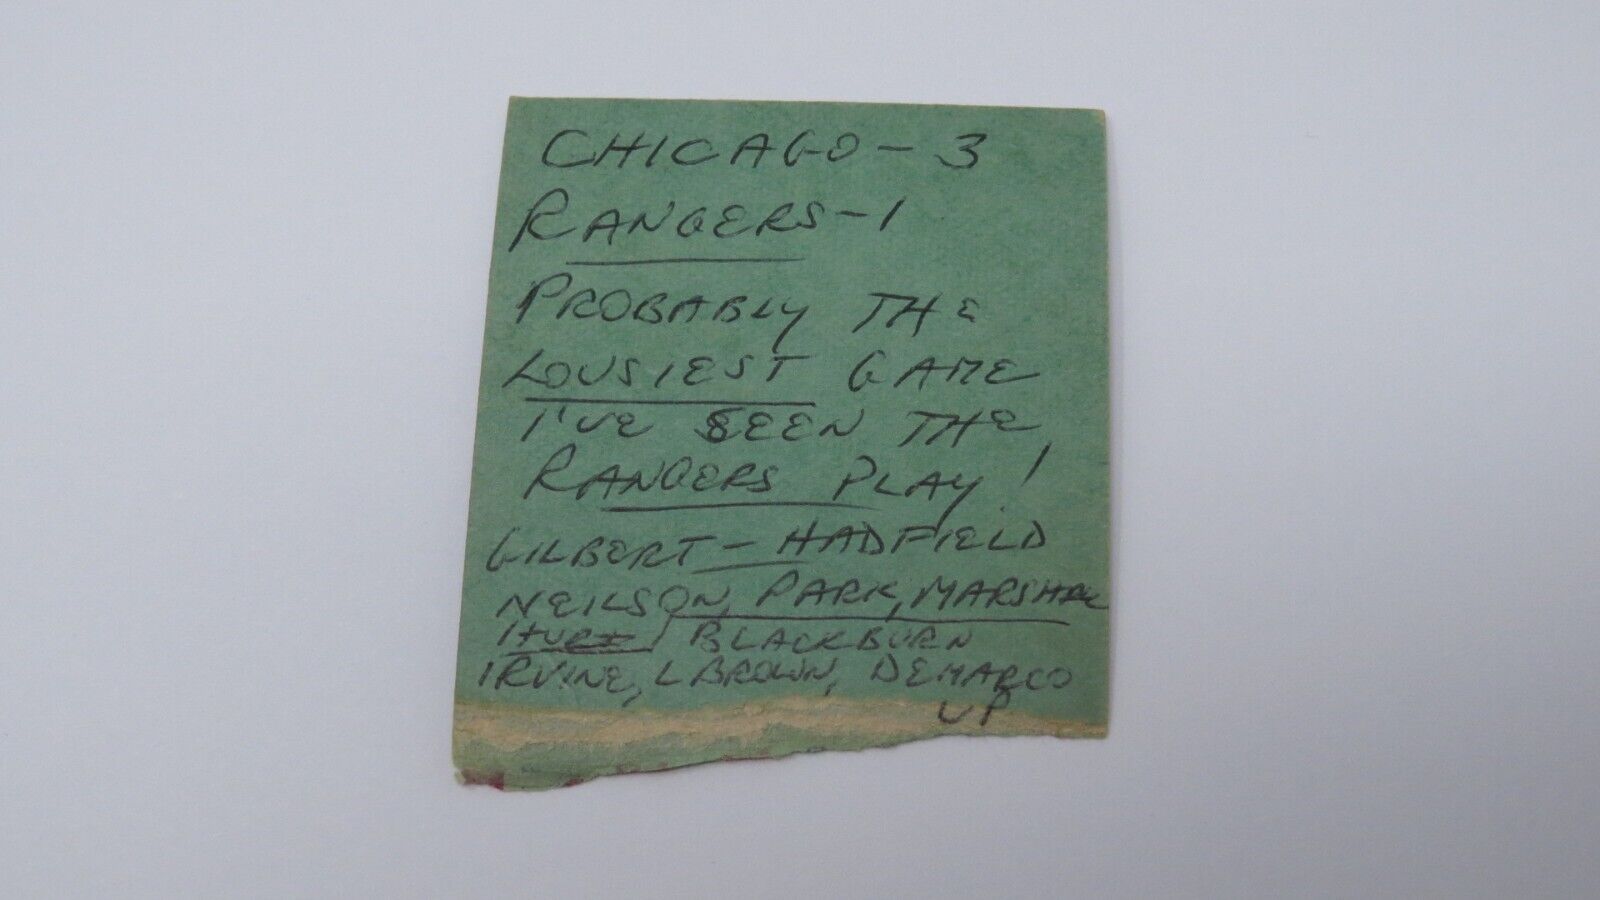 CHICAGO - 3
RANGERS - 1
PROBABLY THE
LOUSIEST GAME
I'VE SEEN THE
RANGERS PLAY!
GILBERT - HADFIELD
NEILSON, PARK, MARSHALL
HURT, BLACKBURN
IRVINE, L BROWN, DEMARCO
UP